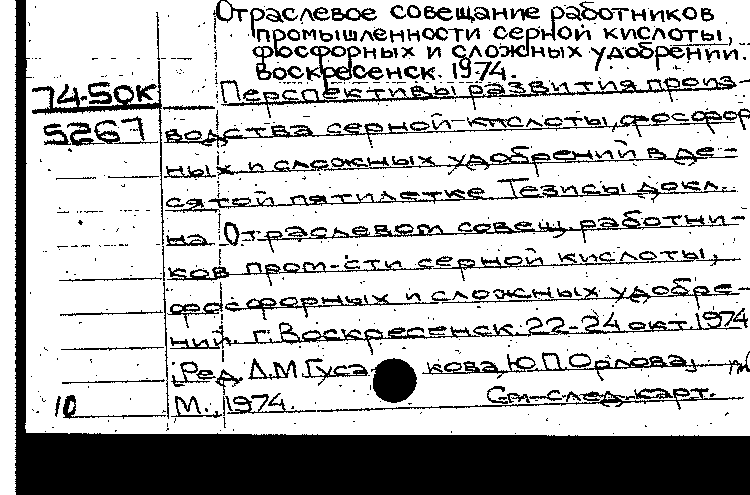 Отраслевое совещание работников
промышленности серной кислоты,
фосфорных и сложных удобрений.
Воскресенск. 1974.
74-50К Перспективы развития произ-
5267 водства серной кислоты, фосфор
ных и сложных удобрений в де-
сятой пятилетке. Тезисы докл.
на Отраслевом совещ. работни-
ков пром-сти серной кислоты,
фосфорных и сложных удобре-
ний. г. Воскресенск. 22-24 окт. 1974
[Ред. Л.М. Гуса кова, Ю.П. Орлова]
10 М., 1974. См. след. карт.